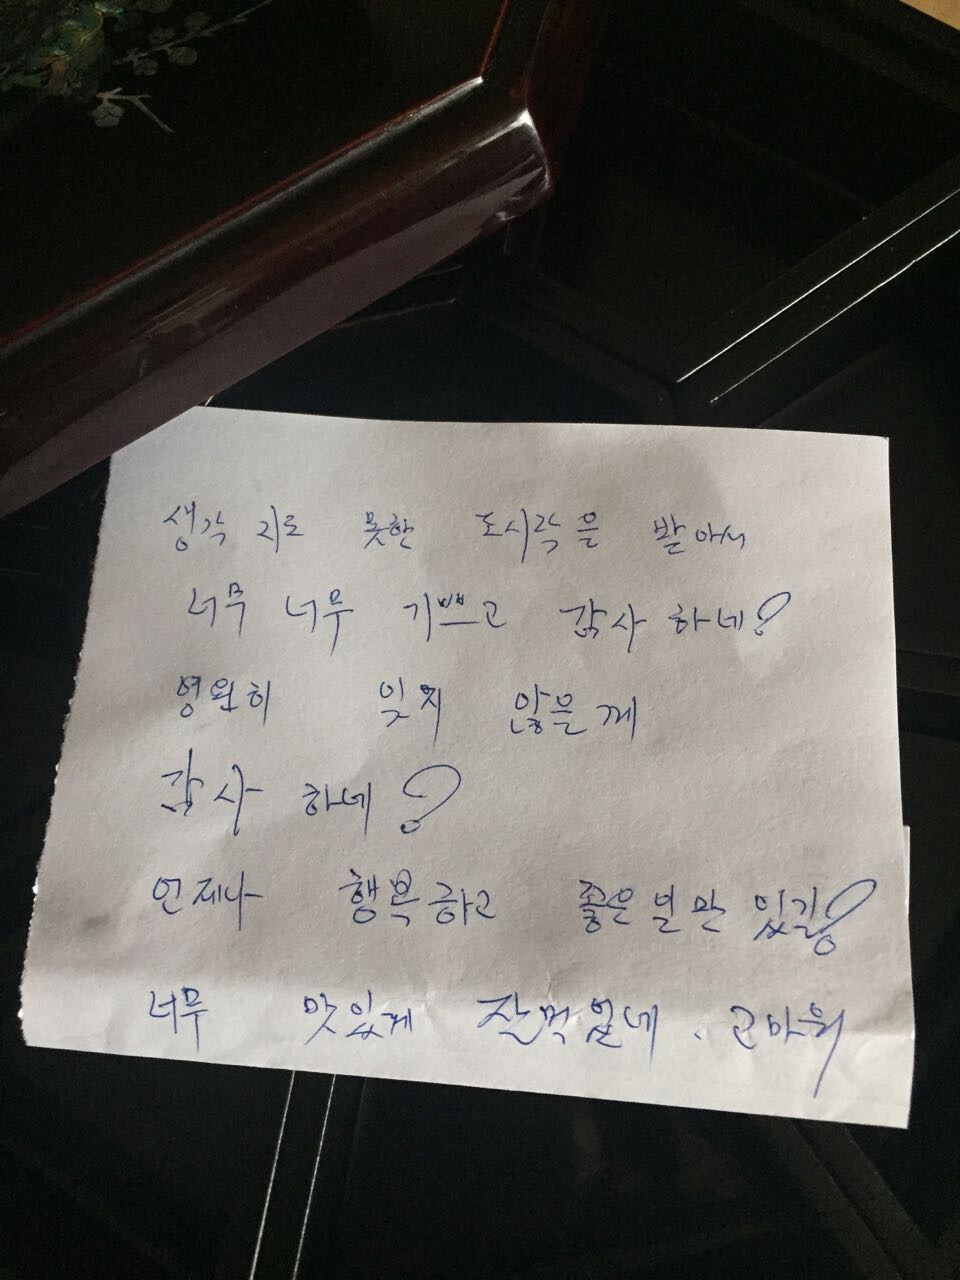 생각지로 못한 도시락을 받아서
너무 너무 기쁘고 감사 하네?
영원히 잊지 않을께
감사 하네?
언제나 행복하고 좋은일만 있길?
너무 맛있게 잘먹었네. 고마워